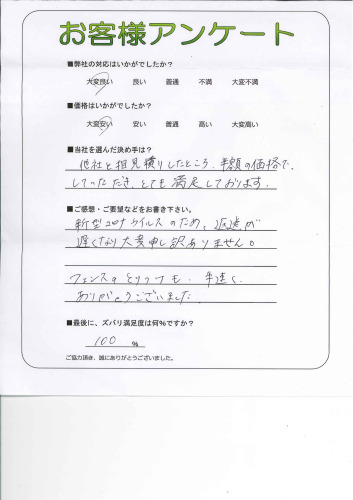 お客様アンケート
■弊社の対応はいかがでしたか？
大変良い　良い　普通　不満　大変不満
■価格はいかがでしたか？
大変安い　安い　普通　高い　大変高い
■当社を選んだ決め手は？
他社と相見積りしたところ、半額の価格で、
していただき、とても満足しております。
■ご感想・ご要望などをお書き下さい。
新型コロナウイルスのため、返送が
遅くなり大変申し訳ありません。
フェンスのとりつけも、手速く、
ありがとうございました。
■最後に、ズバリ満足度は何%ですか？
100 %
ご協力頂き、誠にありがとうございました。